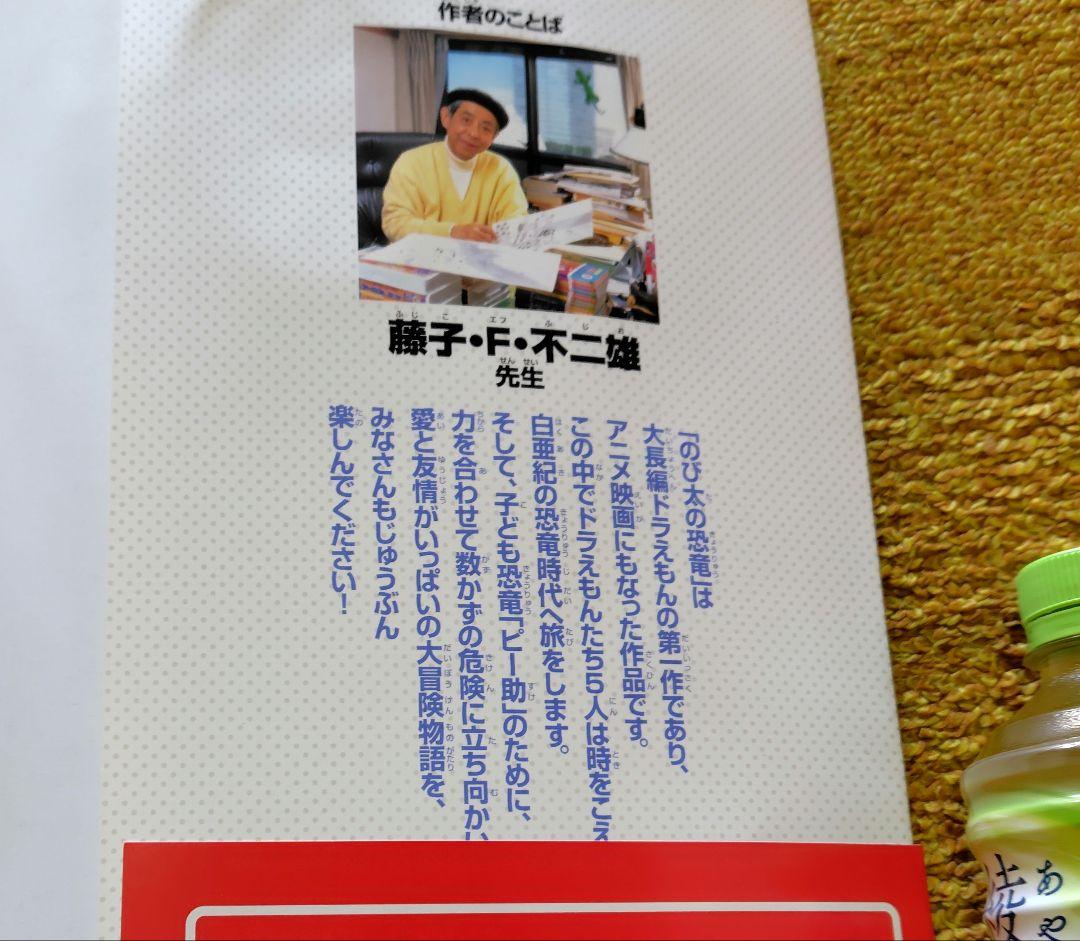 作者のことば
藤子・F・不二雄
先生
「のび太の恐竜」は
大長編ドラえもんの第一作であり、
アニメ映画にもなった作品です。
この中でドラえもんたち5人は時をこえ
白亜紀の恐竜時代へ旅をします。
そして、子ども恐竜「ピー助」のために、
力を合わせて数かずの危険に立ち向かい
愛と友情がいっぱいの大冒険物語を、
みなさんもじゅうぶん
楽しんでください!
あや